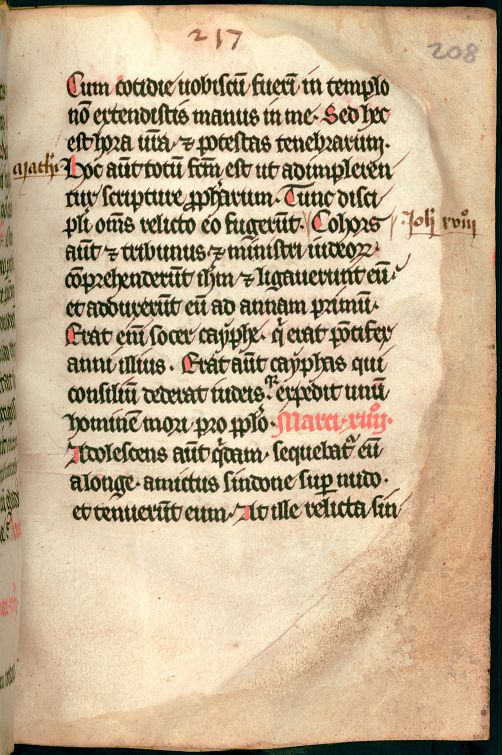 217
208
Cum cotidie uobiscū fueri in templo
nō extendistis manus in me. Sed hec
est hora ura. ⁊ potestas tenebrarum.
Hoc aūt totū fcm est ut adimpleren
tur scripture ꝓpharum. Tunc disci
pli oms relicto eo fugerūt. Cohors
aūt ⁊ tribunus ⁊ ministri iudeoꝝ
cōprehenderūt ihm ⁊ ligauerunt eū.
et adduxerūt eū ad annam primū.
Erat eni socer cayphe. q̇ erat pōtifex
anni illius. Erat aūt cayphas qui
consiliū dederat iudeis. expedit unū
hominem mori pro pplo. Marci. xiiij.
Adolescens aūt q̇dam. sequebat eū
a longe. amictus sindone sup nudo.
et tenuerūt eum. At ille relicta sin
Joh xviij